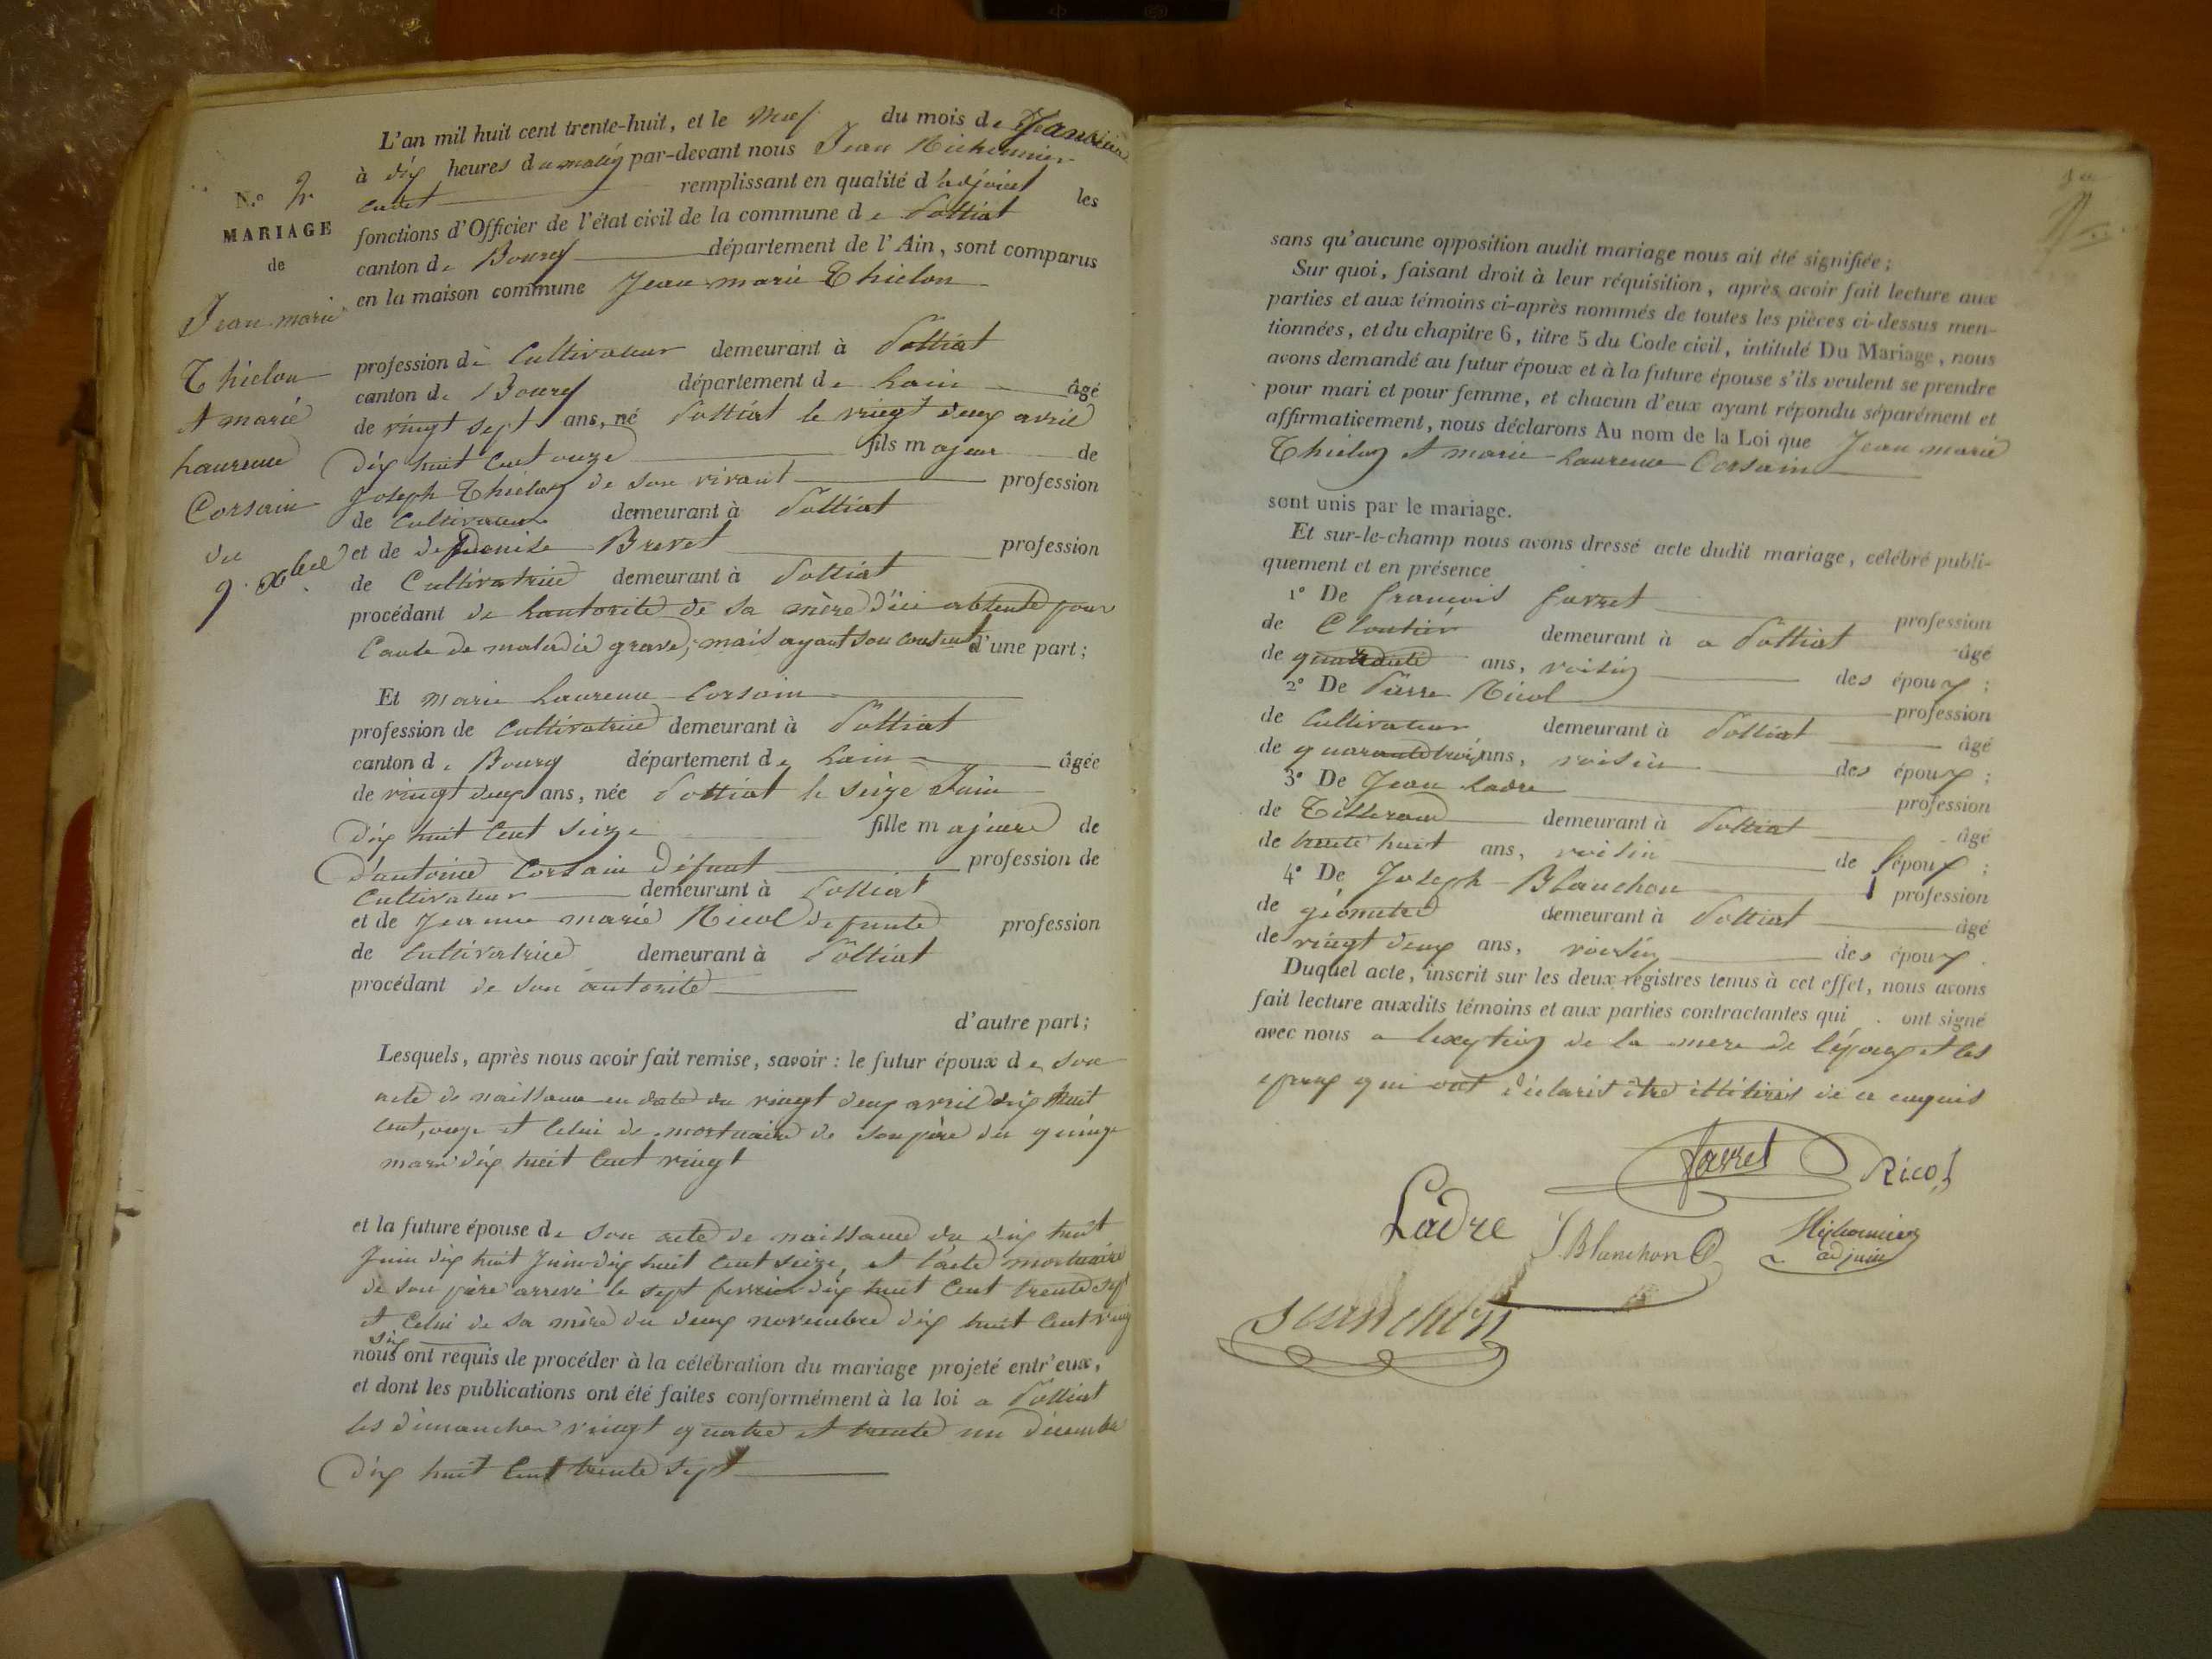 N.o 2.
MARIAGE
de
Jean marie
Thielon
et marie
Laurence
Corsain
du
9. Xbre
L'an mil huit cent trente-huit, et le neuf du mois de Janvier
à dix heures du matin par-devant nous Jean Richonnier
cadet remplissant en qualité d'adjoint les
fonctions d'Officier de l'état civil de la commune de Polliat
canton de Bourg département de l'Ain, sont comparus
en la maison commune Jean marie Thielon
profession de Cultivateur demeurant à Polliat
canton de Bourg département de Lain âgé
de vingt sept ans, né Polliat le vingt deux avril
dix huit cent onze fils majeur de
Joseph Thielon de son vivant profession
de Cultivateur demeurant à Polliat
et de Denise Brevet profession
de Cultivatrice demeurant à Polliat
procédant de Lautorité de sa mère d'ici abtente pour
Cause de maladie grave, mais ayant son consent d'une part;
Et marie Laurence Corsain
profession de Cultivatrice demeurant à Polliat
canton de Bourg département de Lain âgée
de vingt deux ans, née Polliat le seize Juin
dix huit Cent seize fille majeure de
d'antoine Corsain défunt profession de
Cultivateur demeurant à Polliat
et de Jeanne marie Nicol defunte profession
de Cultivatrice demeurant à Polliat
procédant de son autorité
d'autre part;
Lesquels, après nous avoir fait remise, savoir: le futur époux de son
acte de naissance en date du vingt deux avril dix huit
cent, onze et Celui de mortuaire de son père du quinze
mars dix huit Cent vingt
et la future épouse de son acte de naissance du dix huit
Juin dix huit Juin dix huit Cent seize, et l'acte mortuaire
de son père arrivé le sept fevrier dix huit Cent trente sept
et Celui de sa mère du deux novembre dix huit Cent vingt
six
nous ont requis de procéder à la célébration du mariage projeté entr'eux,
et dont les publications ont été faites conformément à la loi a Polliat
les dimanches vingt quatre et trente un décembre
dix huit Cent trente sept
sans qu'aucune opposition audit mariage nous ait été signifiée;
Sur quoi, faisant droit à leur réquisition, après avoir fait lecture aux
parties et aux témoins ci-après nommés de toutes les pièces ci-dessus men-
tionnées, et du chapitre 6, titre 5 du Code civil, intitulé Du Mariage, nous
avons demandé au futur époux et à la future épouse s'ils veulent se prendre
pour mari et pour femme, et chacun d'eux ayant répondu séparément et
affirmativement, nous déclarons Au nom de la Loi que Jean marie
Thielon et marie Laurence Corsain
sont unis par le mariage.
Et sur-le-champ nous avons dressé acte dudit mariage, célébré publi-
quement et en présence
1o De francois favret profession
de Cloutier demeurant à a Polliat âgé
de quarante ans, voisin des époux;
2o De Pierre Nicol profession
de Cultivateur demeurant à Polliat âgé
de quarante trois ans, voisin des époux;
3o De Jean Ladre profession
de Tisserand demeurant à Polliat âgé
de trente huit ans, voisin de l'époux;
4o De Joseph Blanchon profession
de géomètre demeurant à Polliat âgé
de vingt deux ans, voisin des époux.
Duquel acte, inscrit sur les deux registres tenus à cet effet, nous avons
fait lecture auxdits témoins et aux parties contractantes qui ont signé
avec nous a lexeption de la mere de l'époux et les
epoux qui ont déclarés être illitirés de ce enquis
favret
Nicol
Ladre
J. Blanchon
Richonnier
adjoint